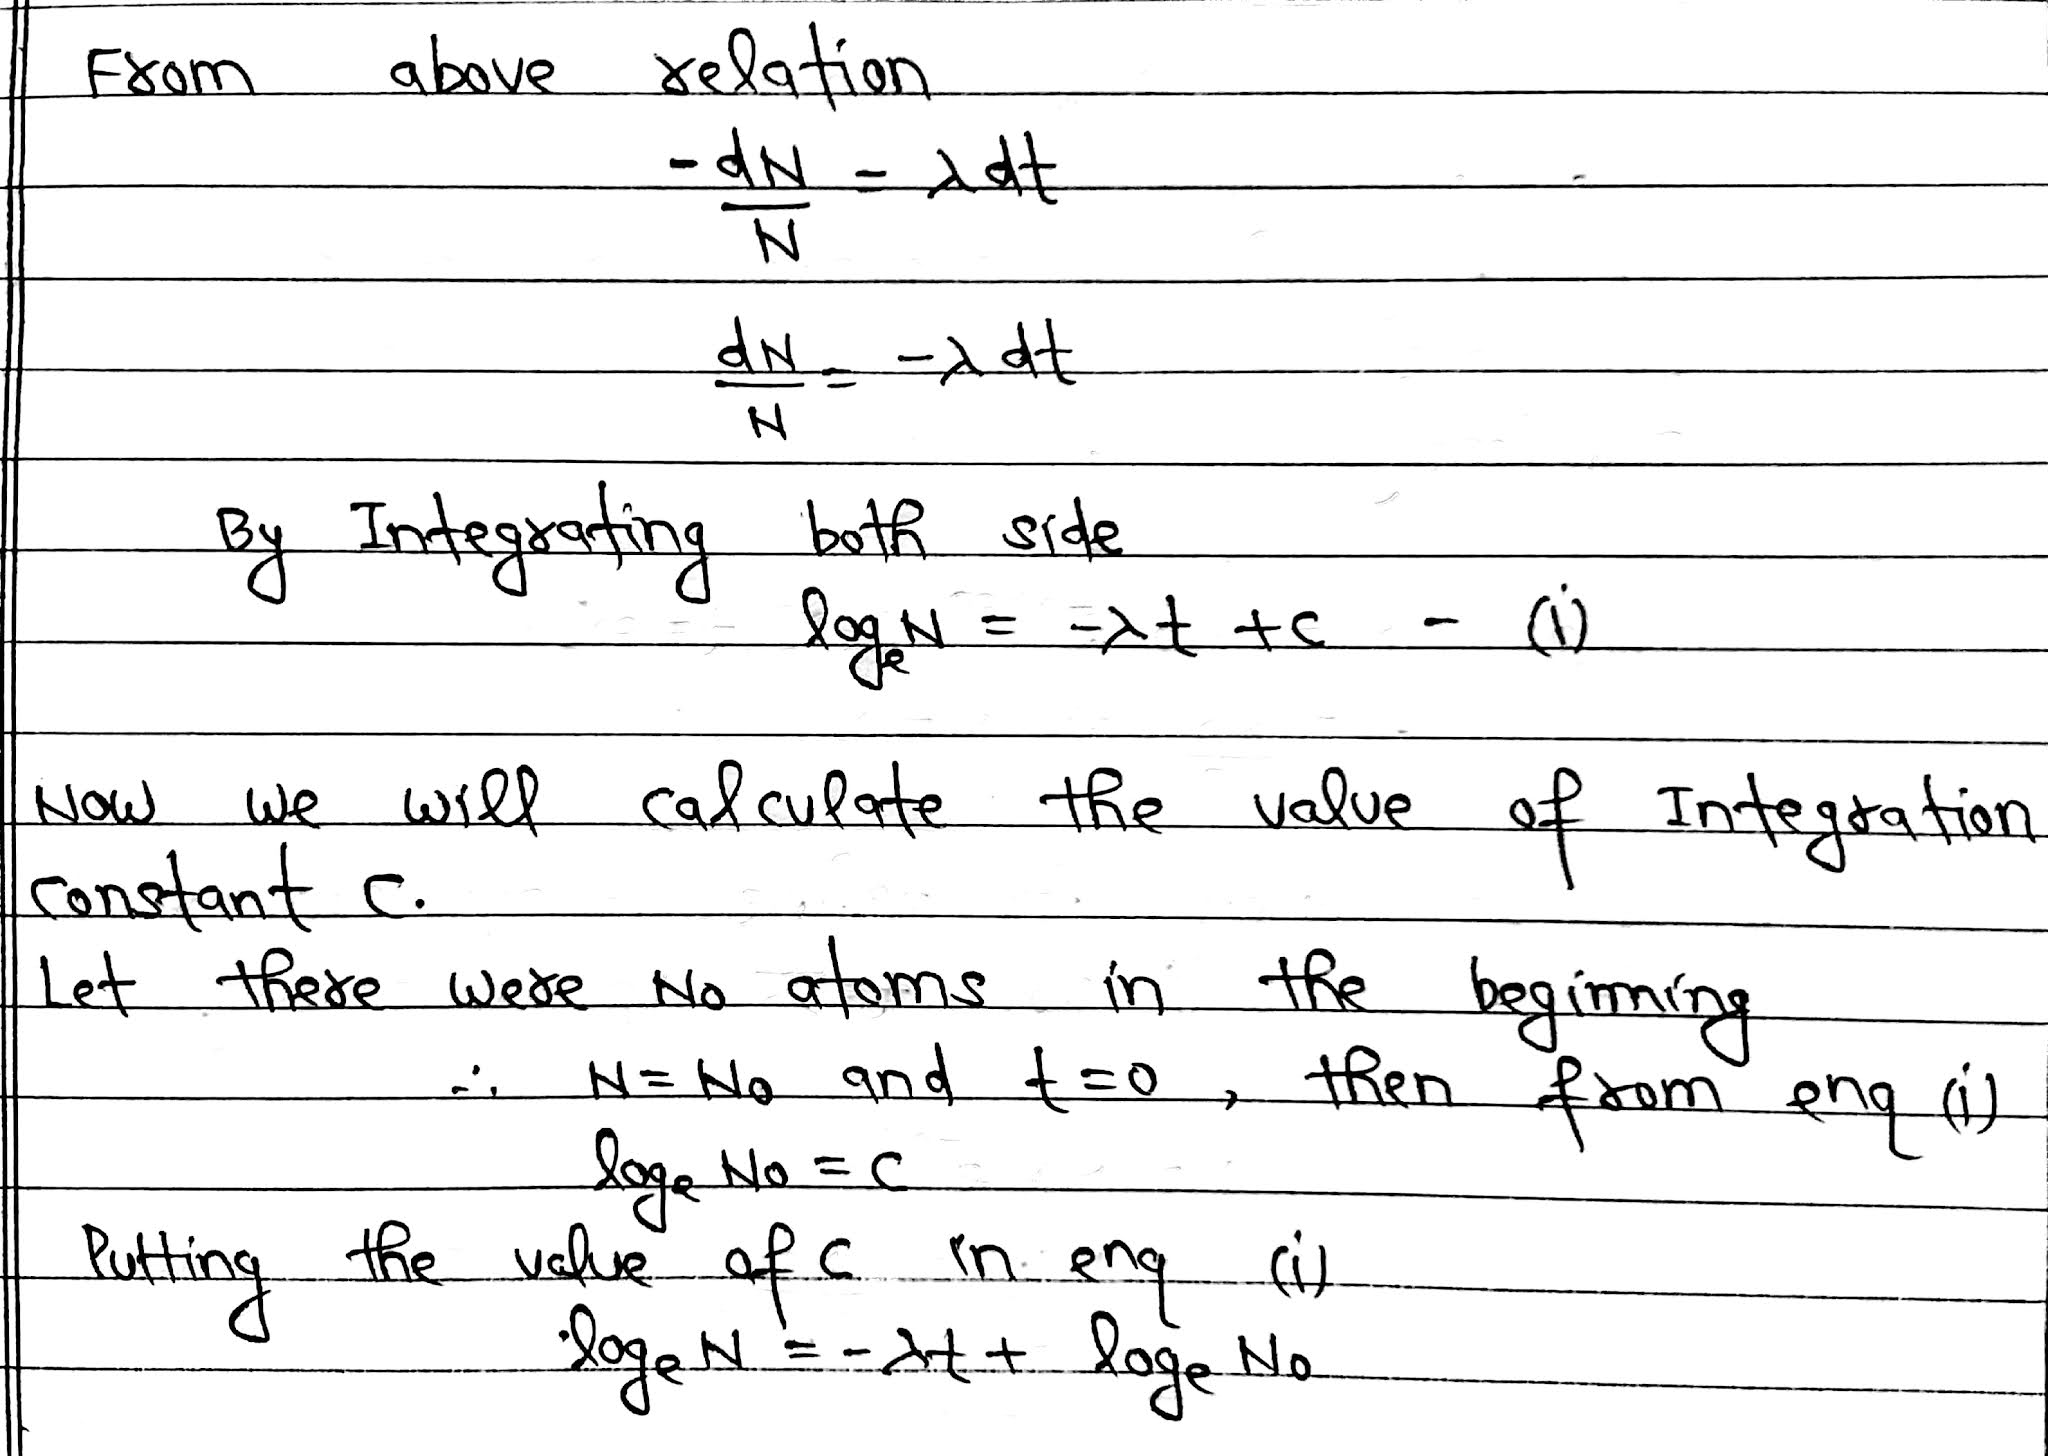 From above relation
-dN/N = λdt
dN/N = -λdt
By Integrating both side
logₑN = -λt + c - (i)
Now we will calculate the value of Integration
constant c.
Let there were No atoms in the beginning
∴ N = No and t=0, then from enq (i)
logₑ No = c
Putting the value of c in enq (i)
logₑ N = -λt + logₑ No